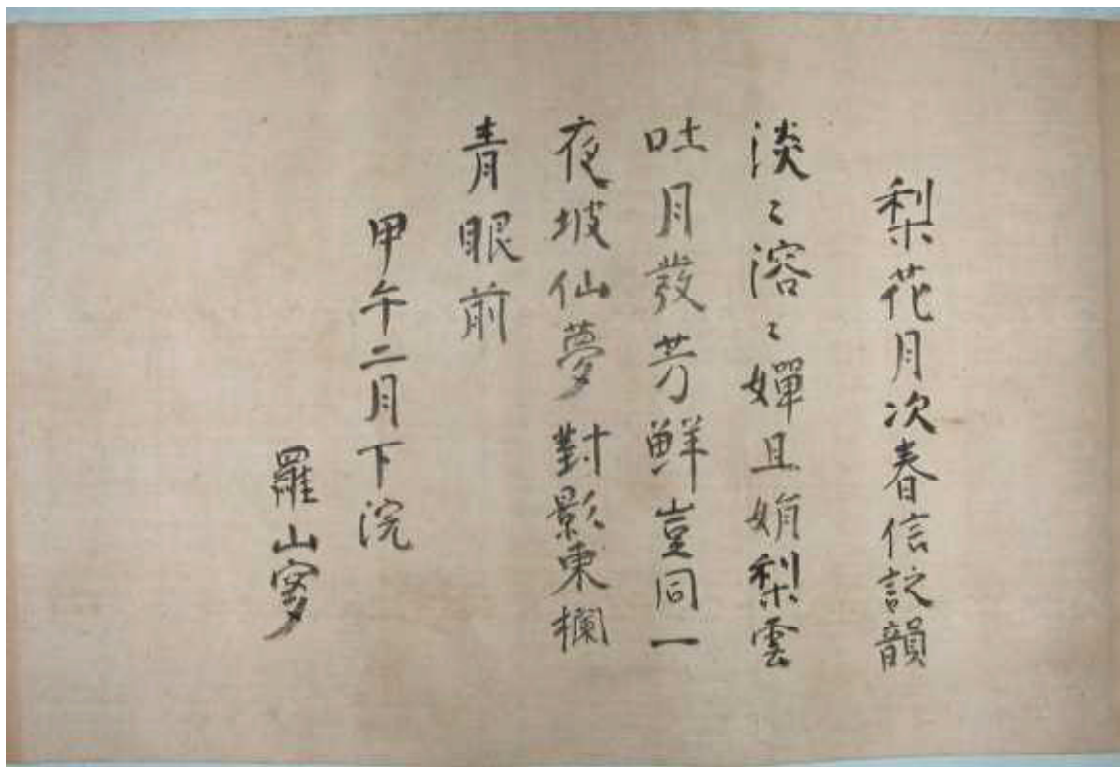 梨花月次春信試韻
淡〻溶〻嬋且娟梨雲
吐月發芳鮮豈同一
夜坡仙夢對影東欄
青眼前
甲午二月下浣
羅山叟